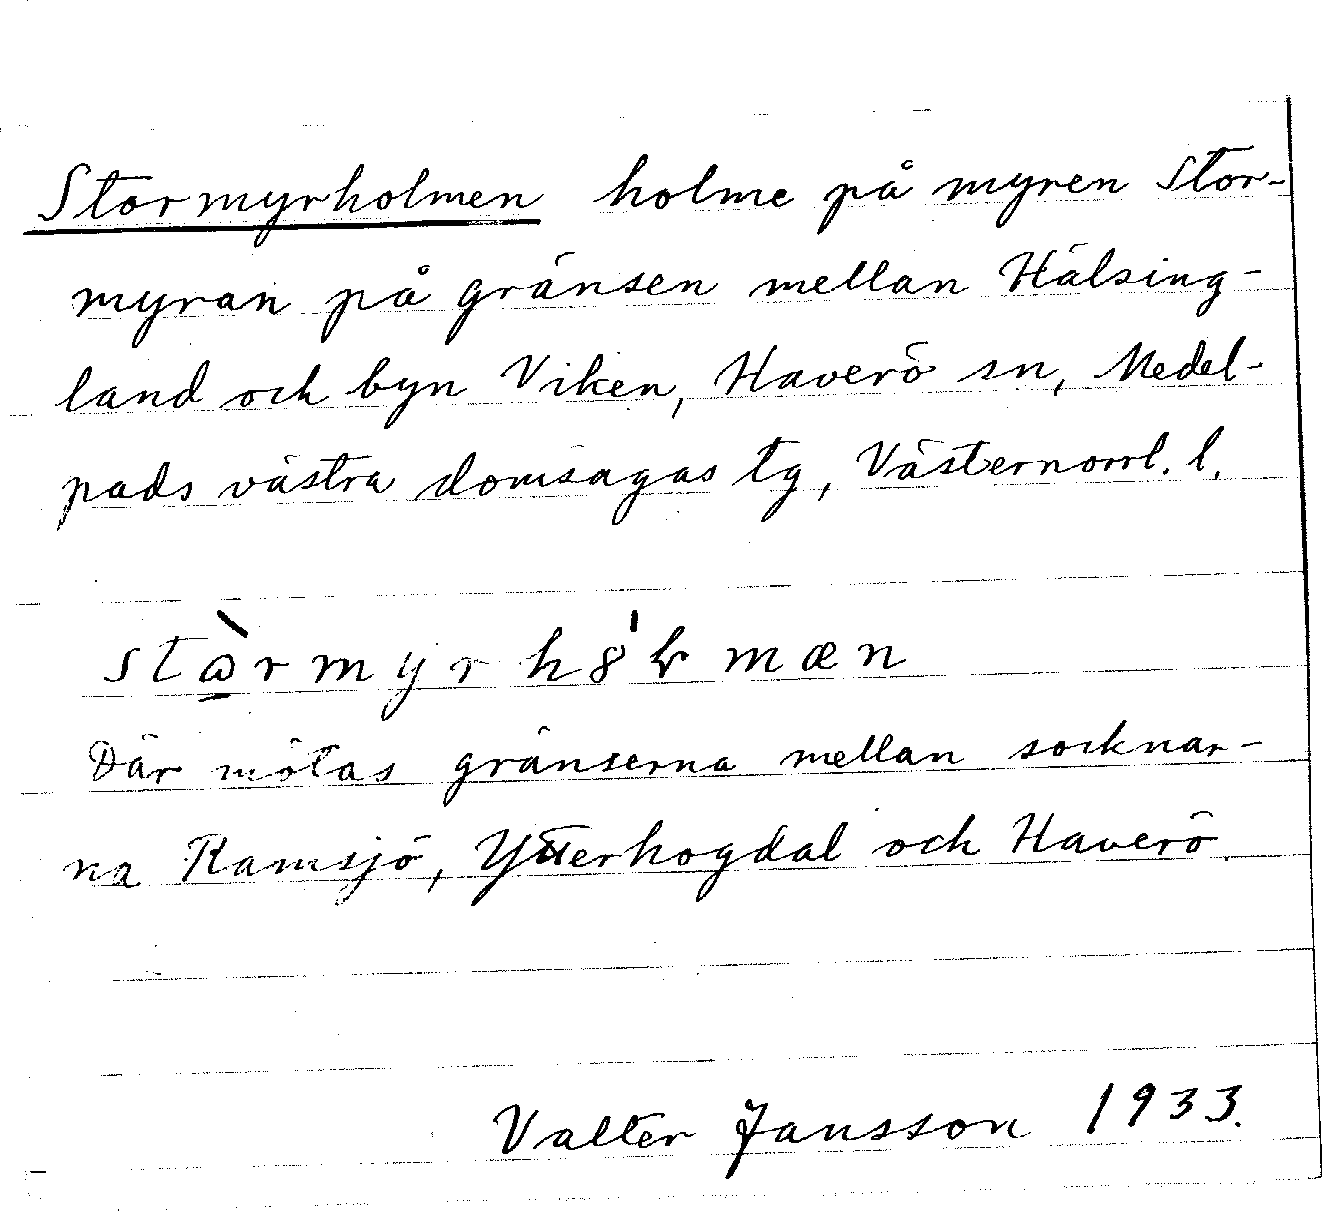 Stormyrholmen holme på myren Stor-
myran på gränsen mellan Hälsing-
land och byn Viken, Haverö sn, Medel-
pads västra domsagas tg, Västernorrl. l.
Där mötas gränserna mellan socknar-
na Ramsjö, Ytterhogdal och Haverö
Valter Jansson 1933.